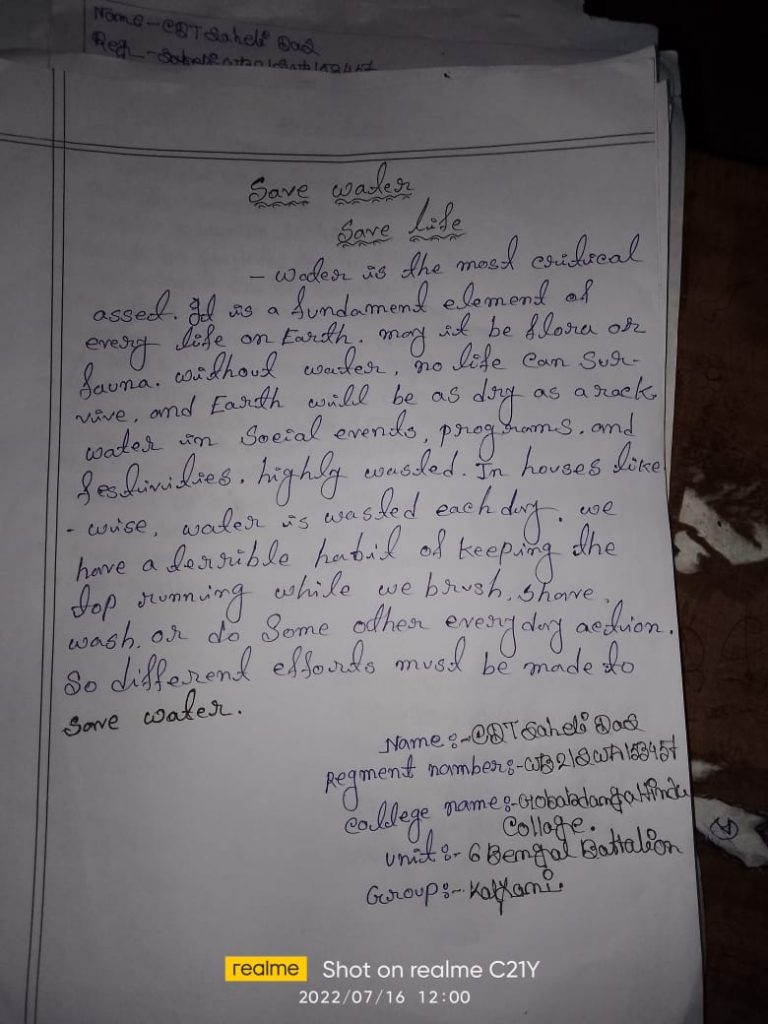 Name-CDT Saheli Das
Regh-
Save water
Save life
- water is the most critical
asset. It is a fundament element of
every life on Earth. may it be flora or
fauna. without water, no life can sur-
vive, and Earth will be as dry as a rack.
water in Social events, programs, and
festivities. highly wasted. In houses like
- wise, water is wasted each day. we
have a terrible habit of keeping the
tap running while we brush, shave,
wash, or do some other everyday action.
So different efforts must be made to
save water.
Name:-CDT Saheli Das
Regment nambers:-WB21SWA153457
College name:-Gobabdanga Hindu
Collage.
unit:- 6 Bengal Battalion
Group:- Kalyani.
realme Shot on realme C21Y
2022/07/16 12:00